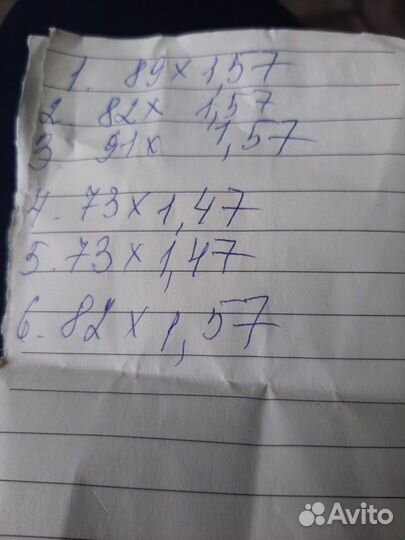 1. 89 x 1,57
2 82 x 1,57
3 91 x 1,57
4. 73 x 1,47
5. 73 x 1,47
6. 82 x 1,57
Avito